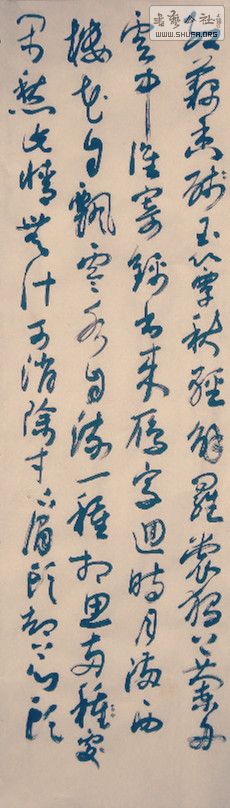 書藝公社
WWW.SHUFA.ORG
红藕香残玉簟秋輕解羅裳獨上蘭舟
雲中誰寄錦書来雁字迴時月滿西
樓花自飄零水自流一種相思兩種處
閑愁此情無計可消除才下眉頭却上心頭